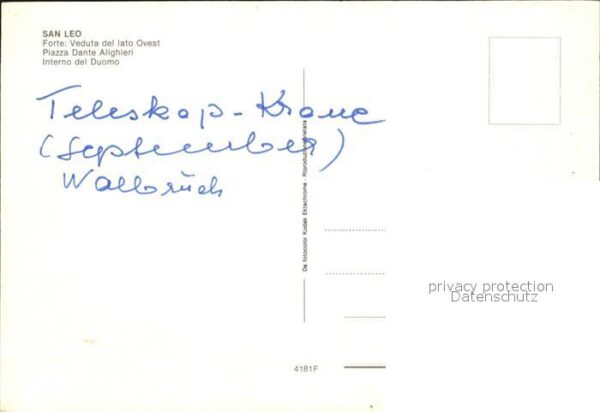 SAN LEO
Forte: Veduta del lato Ovest
Piazza Dante Alighieri
Interno del Duomo
Teleskop-Krone
(September)
Walbrück
Da fotocolor Kodak Ektachrome - Riproduzione vietata
privacy protection
Datenschutz
4181F